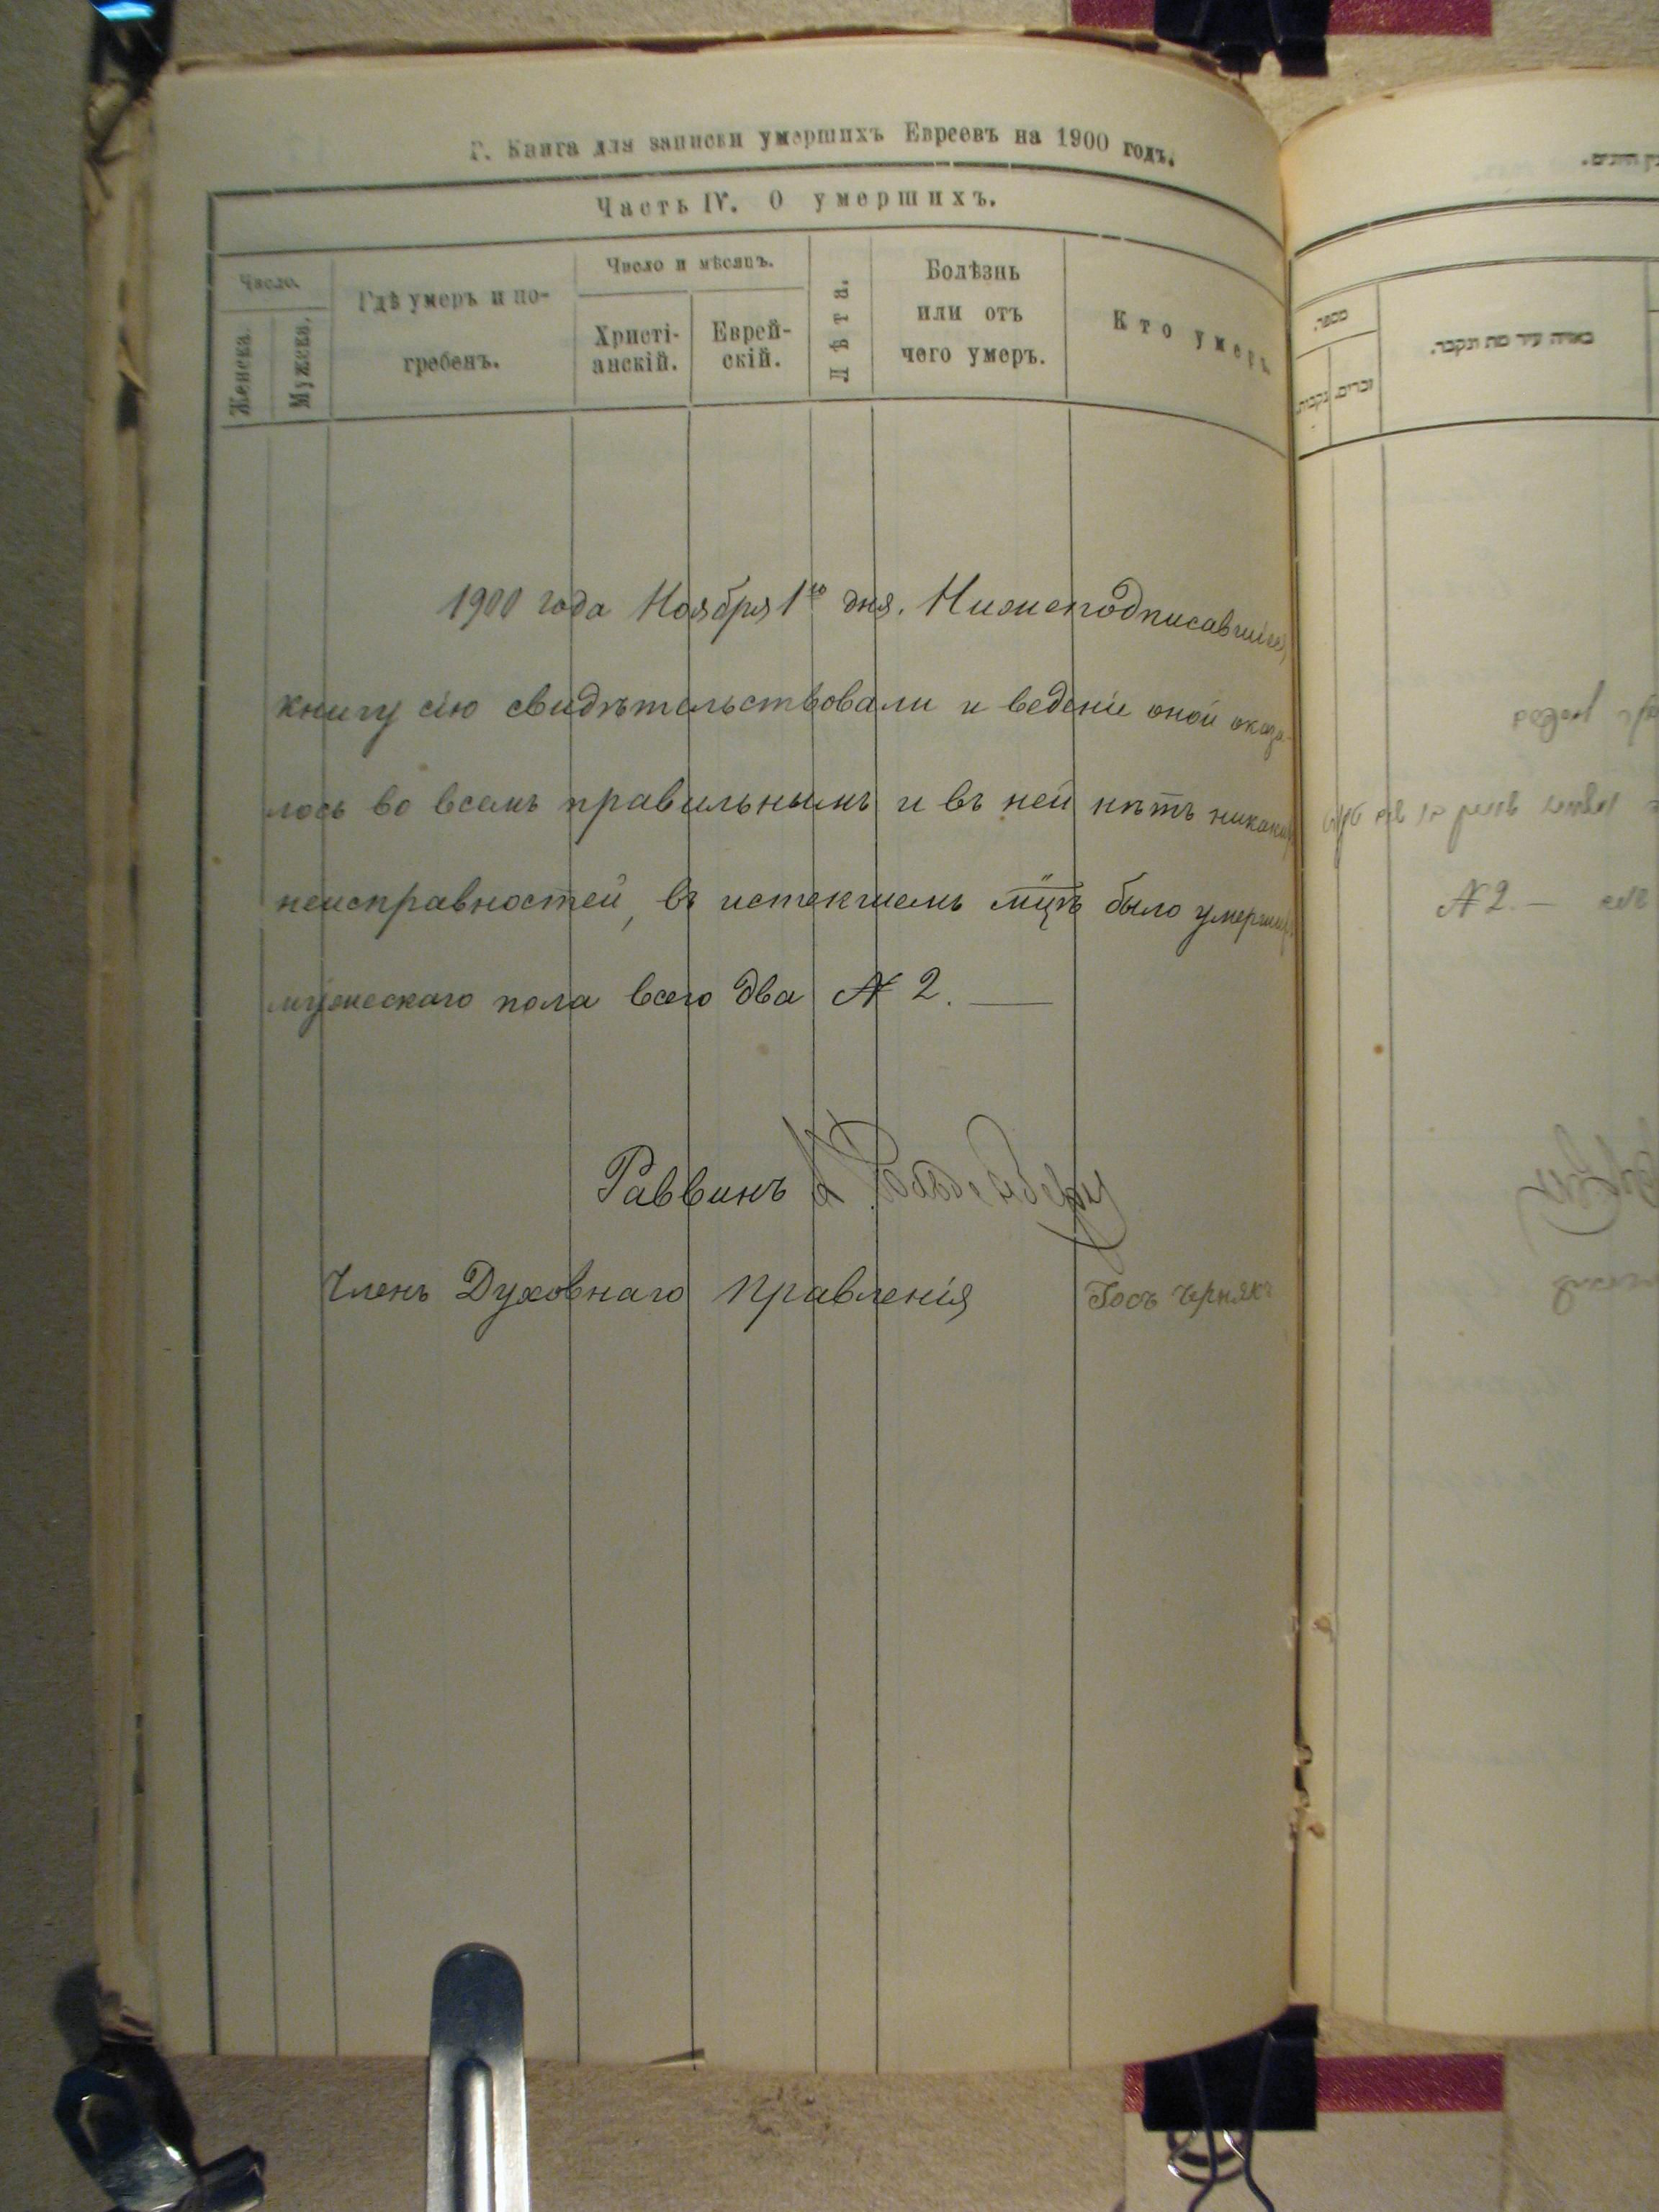 Г. Книга для записки умершихъ Евреевъ на 1900 годъ.
Часть IV. О умершихъ.
Число.
Женска.
Мужска.
Гдѣ умеръ и по-
гребенъ.
Число и мѣсяцъ.
Христі-
анскій.
Еврей-
скій.
Лѣта.
Болѣзнь
или отъ
чего умеръ.
Кто умеръ.
1900 года Ноября 1го дня. Нижеподписавшіеся
книгу сію свидѣтельствовали и веденіе оной оказа-
лось во всемъ правильнымъ и въ ней нѣтъ никакихъ
неисправностей, въ истекшемъ мцѣ было умершихъ
мужескаго пола всего два № 2.
Раввинъ
Членъ Духовнаго Правленія Іосъ Чернякъ
מספר.
נקבות.
זכרים.
באיזה עיר מת ונקבר.
№ 2. —